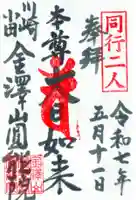 同行二人
奉拝
令和七年
五月十一日
本尊
大日如来
川崎
金澤山圓能院